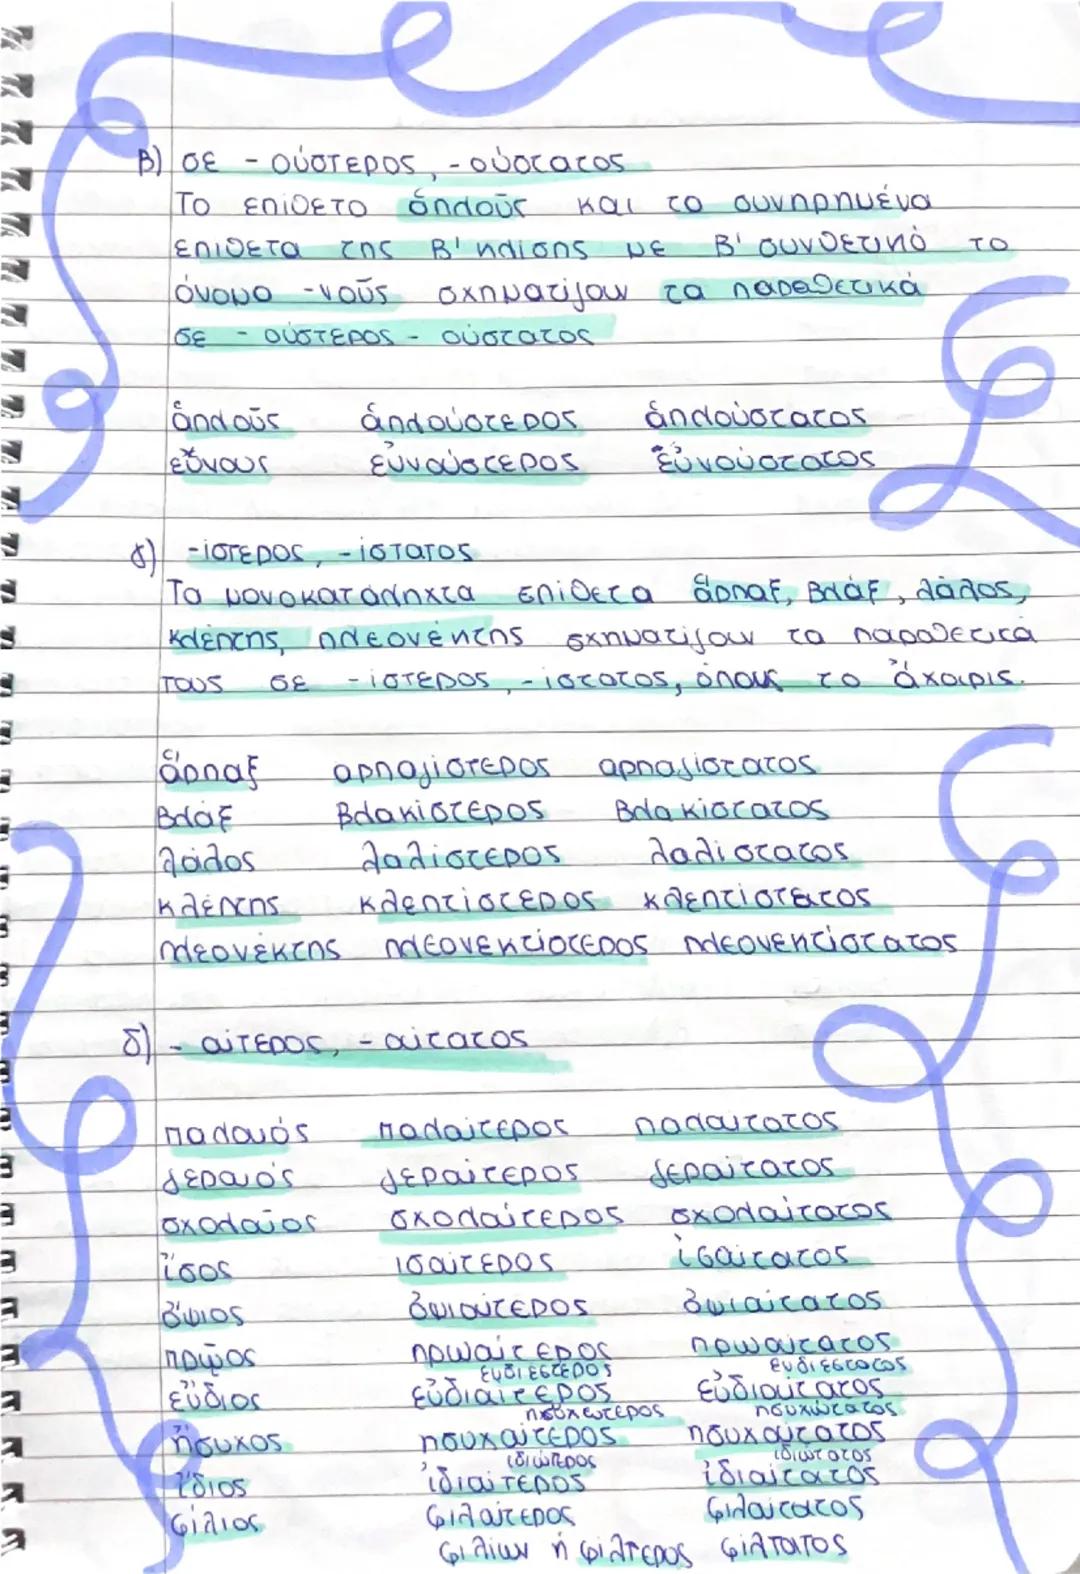 β) σε -ούστερος, -ούστατος
Το επίθετο ἁπλοῦς και το συνηρημένα
επίθετα της Β' κλίσης με Β' συνθετικό το
όνομο -νοῦς σχηματίζουν τα παραθετικά
σε -ούστερος - ούστατος
ἁπλοῦς ἁπλούστερος ἁπλούστατος
εὔνους εὐνούστερος εὐνούστατος
γ) -ίστερος, -ίστατος
Τα μονοκατάληχτα επίθετα ἅρπαξ, βλάξ, λάλος,
κλέπτης, πλεονέκτης σχηματίζουν τα παραθετικά
τους σε -ίστερος, -ίστατος, όπως το ἄχαρις.
ἅρπαξ αρπαγίστερος αρπαγίστατος
βλάξ βλακίστερος βλακίστατος
λάλος λαλίστερος λαλίστατος
κλέπτης κλεπτίστερος κλεπτίστατος
πλεονέκτης πλεονεκτίστερος πλεονεκτίστατος
δ) -αίτερος, -αίτατος
παλαιός παλαίτερος παλαίτατος
γεραιός γεραίτερος γεραίτατος
σχολαῖος σχολαίτερος σχολαίτατος
ἴσος ισαίτερος ἰσαίτατος
ὄψιος ὀψιαίτερος ὀψιαίτατος
πρῷος πρωαίτερος πρωαίτατος
ευδιέστερος ευδιέστατος
εὔδιος εὐδιαίτερος εὐδιαίτατος
ησυχώτερος ησυχώτατος
ἥσυχος ησυχαίτερος ησυχαίτατος
ιδιώτερος ιδιώτατος
ἴδιος ἰδιαίτερος ἰδιαίτατος
φίλιος φιλαίτερος φιλαίτατος
φιλίων ή φίλτερος φίλτατος